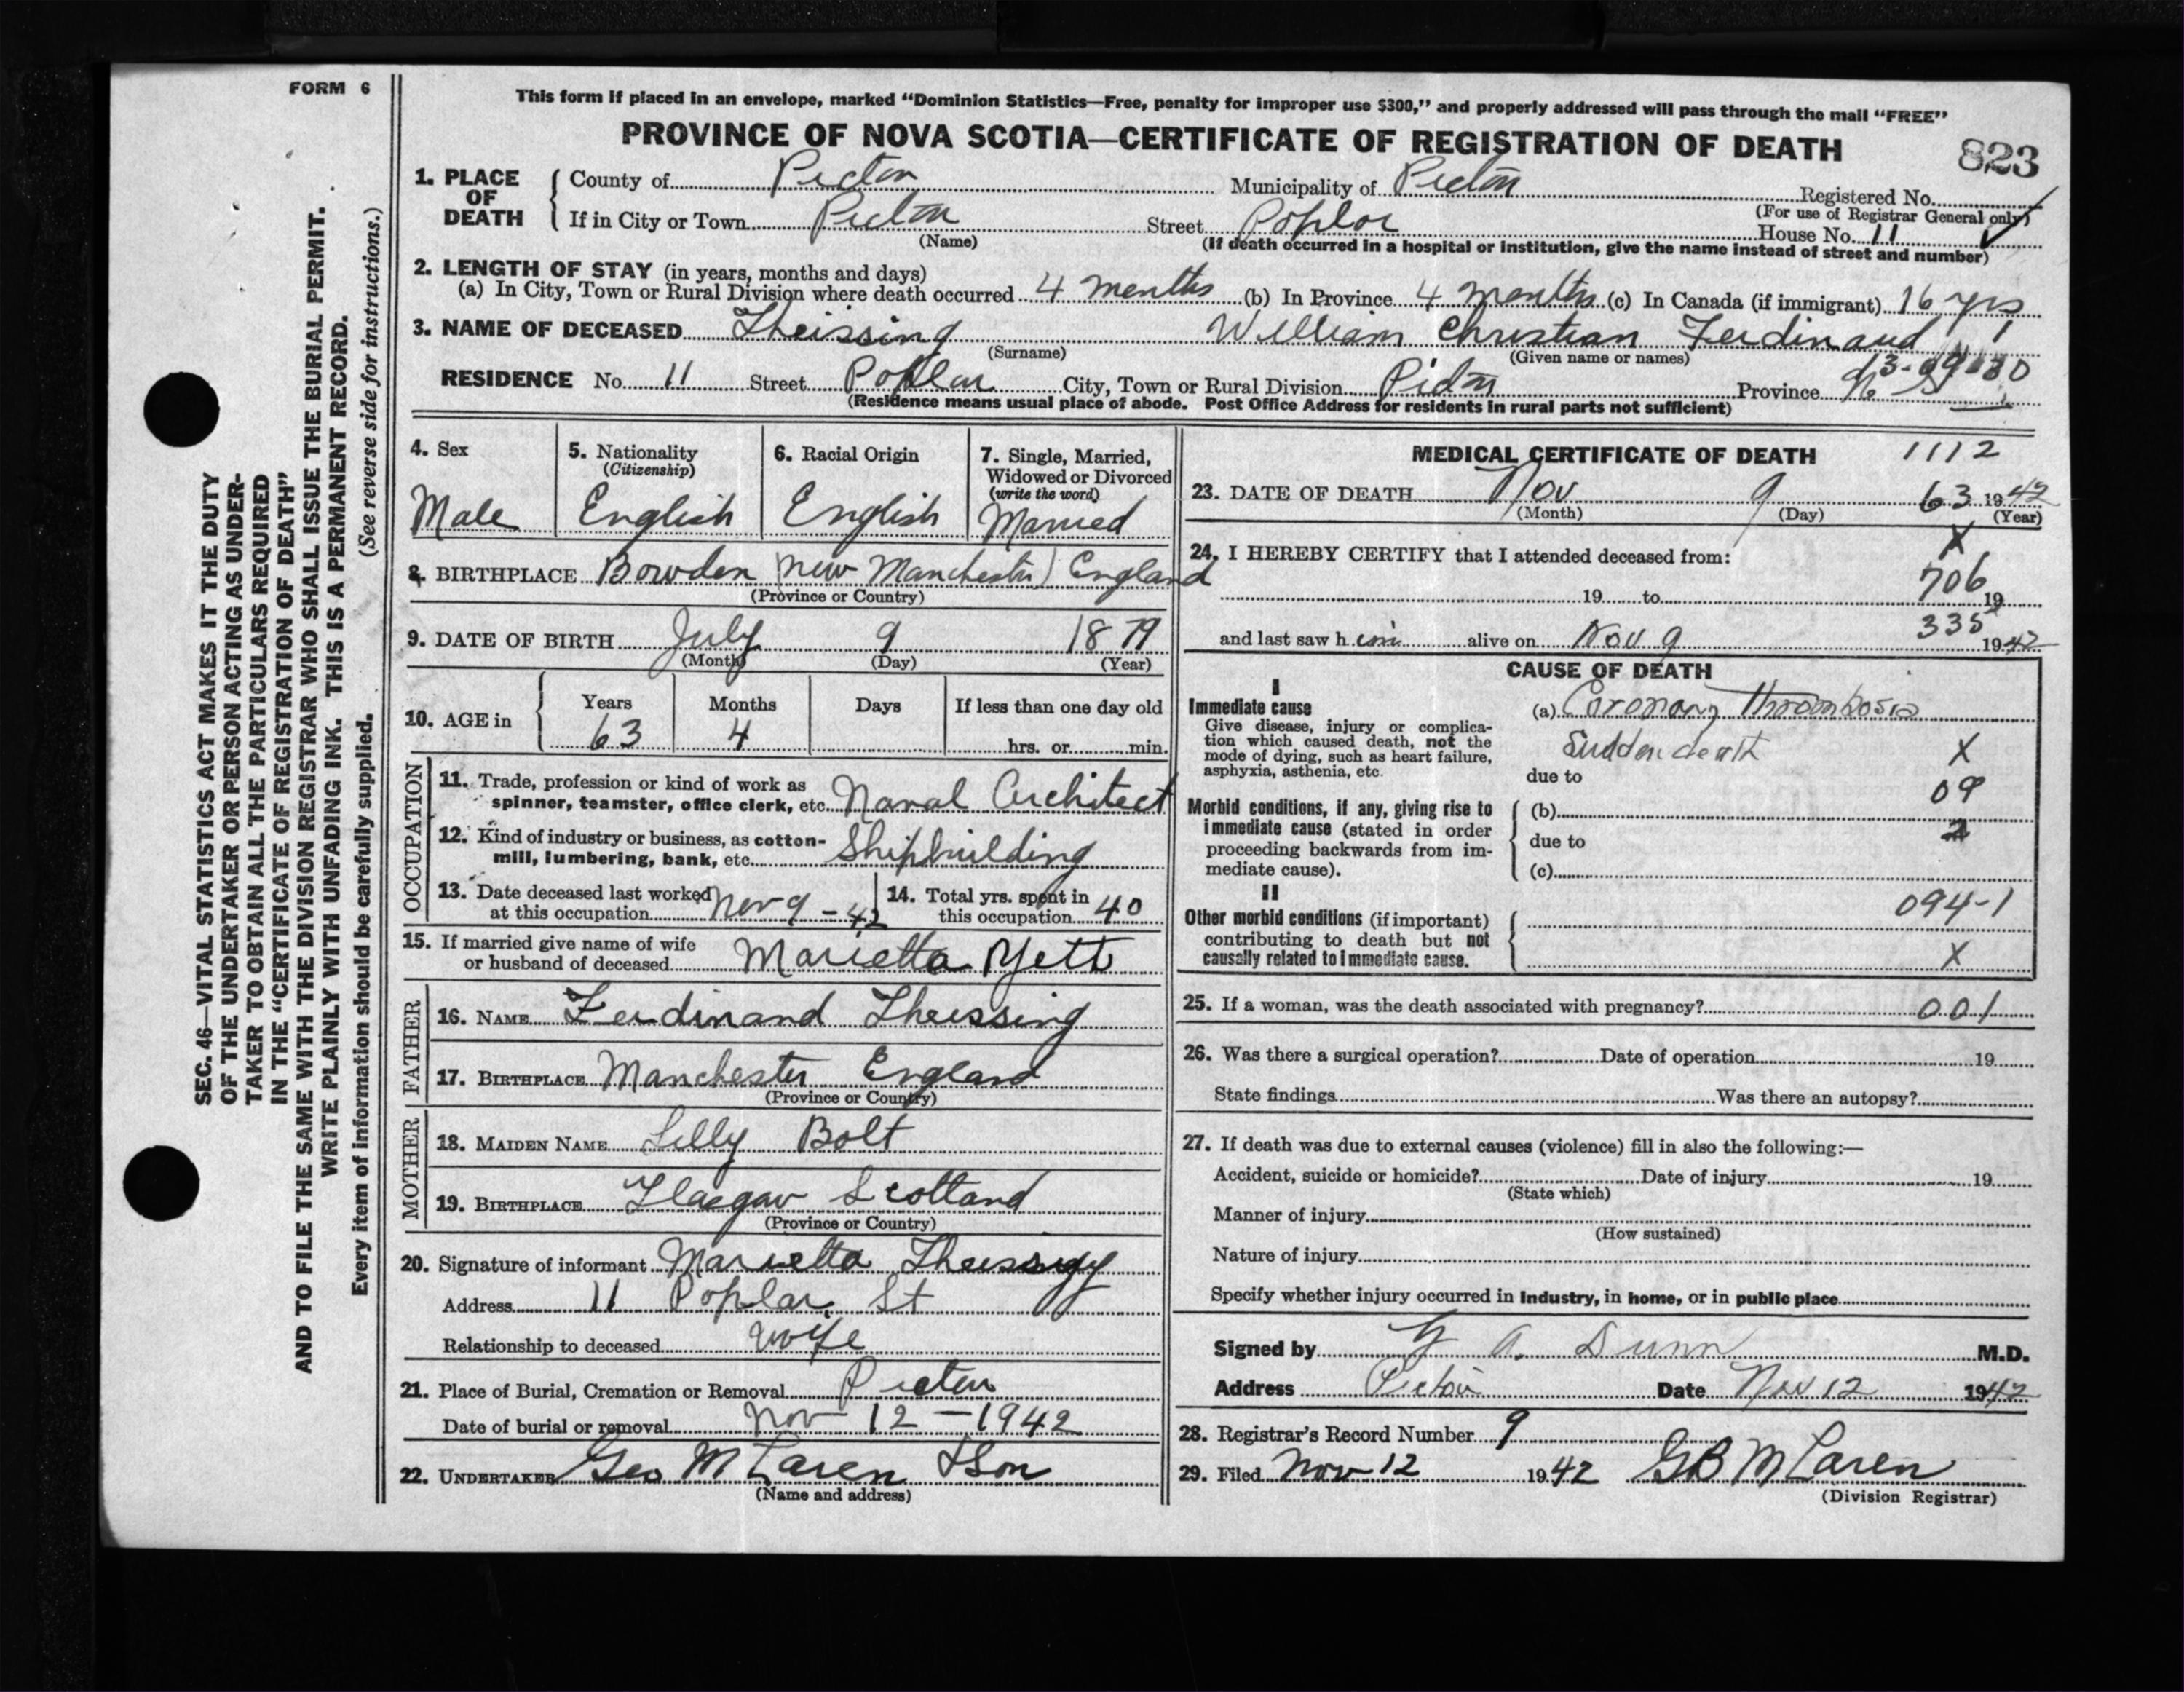 FORM 6
This form if placed in an envelope, marked “Dominion Statistics—Free, penalty for improper use $300,” and properly addressed will pass through the mail “FREE”
PROVINCE OF NOVA SCOTIA—CERTIFICATE OF REGISTRATION OF DEATH
823
1. PLACE OF DEATH County of Pictou Municipality of Pictou Registered No.
(For use of Registrar General only)
If in City or Town Pictou Street Poplar House No. 11
(Name) (If death occurred in a hospital or institution, give the name instead of street and number)
2. LENGTH OF STAY (in years, months and days)
(a) In City, Town or Rural Division where death occurred 4 months (b) In Province 4 months (c) In Canada (if immigrant) 16 yrs
3. NAME OF DECEASED Theissing William Christian Ferdinand
(Surname) (Given name or names)
RESIDENCE No. 11 Street Poplar City, Town or Rural Division Pictou Province N S
(Residence means usual place of abode. Post Office Address for residents in rural parts not sufficient)
4. Sex 5. Nationality (Citizenship) 6. Racial Origin 7. Single, Married, Widowed or Divorced (write the word)
Male English English Married
8. BIRTHPLACE Bowden (new Manchester) England
(Province or Country)
9. DATE OF BIRTH July 9 1879
(Month) (Day) (Year)
10. AGE in Years Months Days If less than one day old
63 4 hrs. or min.
OCCUPATION
11. Trade, profession or kind of work as
spinner, teamster, office clerk, etc. Naval Architect
12. Kind of industry or business, as cotton-
mill, lumbering, bank, etc. Shipbuilding
13. Date deceased last worked at this occupation Nov 9 - 42
14. Total yrs. spent in this occupation 40
15. If married give name of wife
or husband of deceased Marietta Yett
FATHER
16. NAME Ferdinand Theissing
17. BIRTHPLACE Manchester England
(Province or Country)
MOTHER
18. MAIDEN NAME Lilly Bolt
19. BIRTHPLACE Glasgow Scotland
(Province or Country)
20. Signature of informant Marietta Theissing
Address 11 Poplar St
Relationship to deceased wife
21. Place of Burial, Cremation or Removal Pictou
Date of burial or removal Nov 12 - 1942
22. UNDERTAKER Geo McLaren & Son
(Name and address)
MEDICAL CERTIFICATE OF DEATH 1112
23. DATE OF DEATH Nov 9 63 1942
(Month) (Day) (Year)
X
24. I HEREBY CERTIFY that I attended deceased from:
706
19 to 19
335
and last saw h im alive on Nov 9 1942
CAUSE OF DEATH
I
Immediate cause
Give disease, injury or complica-
tion which caused death, not the
mode of dying, such as heart failure,
asphyxia, asthenia, etc.
(a) Coronary Thrombosis
Sudden death X
due to
09
Morbid conditions, if any, giving rise to
immediate cause (stated in order
proceeding backwards from im-
mediate cause).
(b)
due to 2
(c)
II
094-1
Other morbid conditions (if important)
contributing to death but not
causally related to immediate cause.
X
25. If a woman, was the death associated with pregnancy? 001
26. Was there a surgical operation? Date of operation 19
State findings Was there an autopsy?
27. If death was due to external causes (violence) fill in also the following:—
Accident, suicide or homicide? Date of injury 19
(State which)
Manner of injury
(How sustained)
Nature of injury
Specify whether injury occurred in Industry, in home, or in public place
Signed by G A. Dunn M.D.
Address Pictou Date Nov 12 1942
28. Registrar's Record Number 9
29. Filed Nov 12 1942 GB McLaren
(Division Registrar)
SEC. 46—VITAL STATISTICS ACT MAKES IT THE DUTY
OF THE UNDERTAKER OR PERSON ACTING AS UNDER-
TAKER TO OBTAIN ALL THE PARTICULARS REQUIRED
IN THE “CERTIFICATE OF REGISTRATION OF DEATH”
AND TO FILE THE SAME WITH THE DIVISION REGISTRAR WHO SHALL ISSUE THE BURIAL PERMIT.
WRITE PLAINLY WITH UNFADING INK. THIS IS A PERMANENT RECORD.
Every item of information should be carefully supplied. (See reverse side for instructions.)